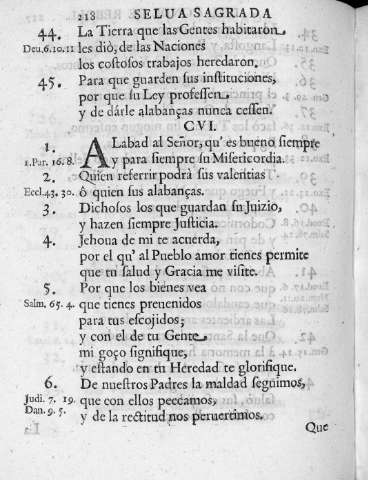 218 SELUA SAGRADA
44. La Tierra que las Gentes habitaron
Deu,6.10.11 les diò, de las Naciones
los costosos trabajos heredaron.
45. Para que guarden sus instituciones,
por que su Ley professen
y de dárle alabanças nunca cessen.
CVI.
1. ALabad al Señor, qu' es bueno siempre
1.Par. 16.8. y para siempre su Misericordia.
2. Quien referrir podrà sus valentias
Eccl.43. 30. ô quien sus alabanças.
3. Dichosos los que guardan su Juizio,
y hazen siempre Justicia.
4. Jehoua de mi te acuerda,
por el qu' al Pueblo amor tienes permite
que tu salud y Gracia me visite.
5. Por que los bienes vea
Salm. 65. 4. que tienes preuenidos
para tus escojidos;
y con el de tu Gente
mi goço signifique,
y estando en tu Heredad te glorifique.
6. De nuestros Padres la maldad seguimos,
Judi. 7. 19. que con ellos peccamos,
Dan. 9. 5. y de la rectitud nos peruertimos.
Que